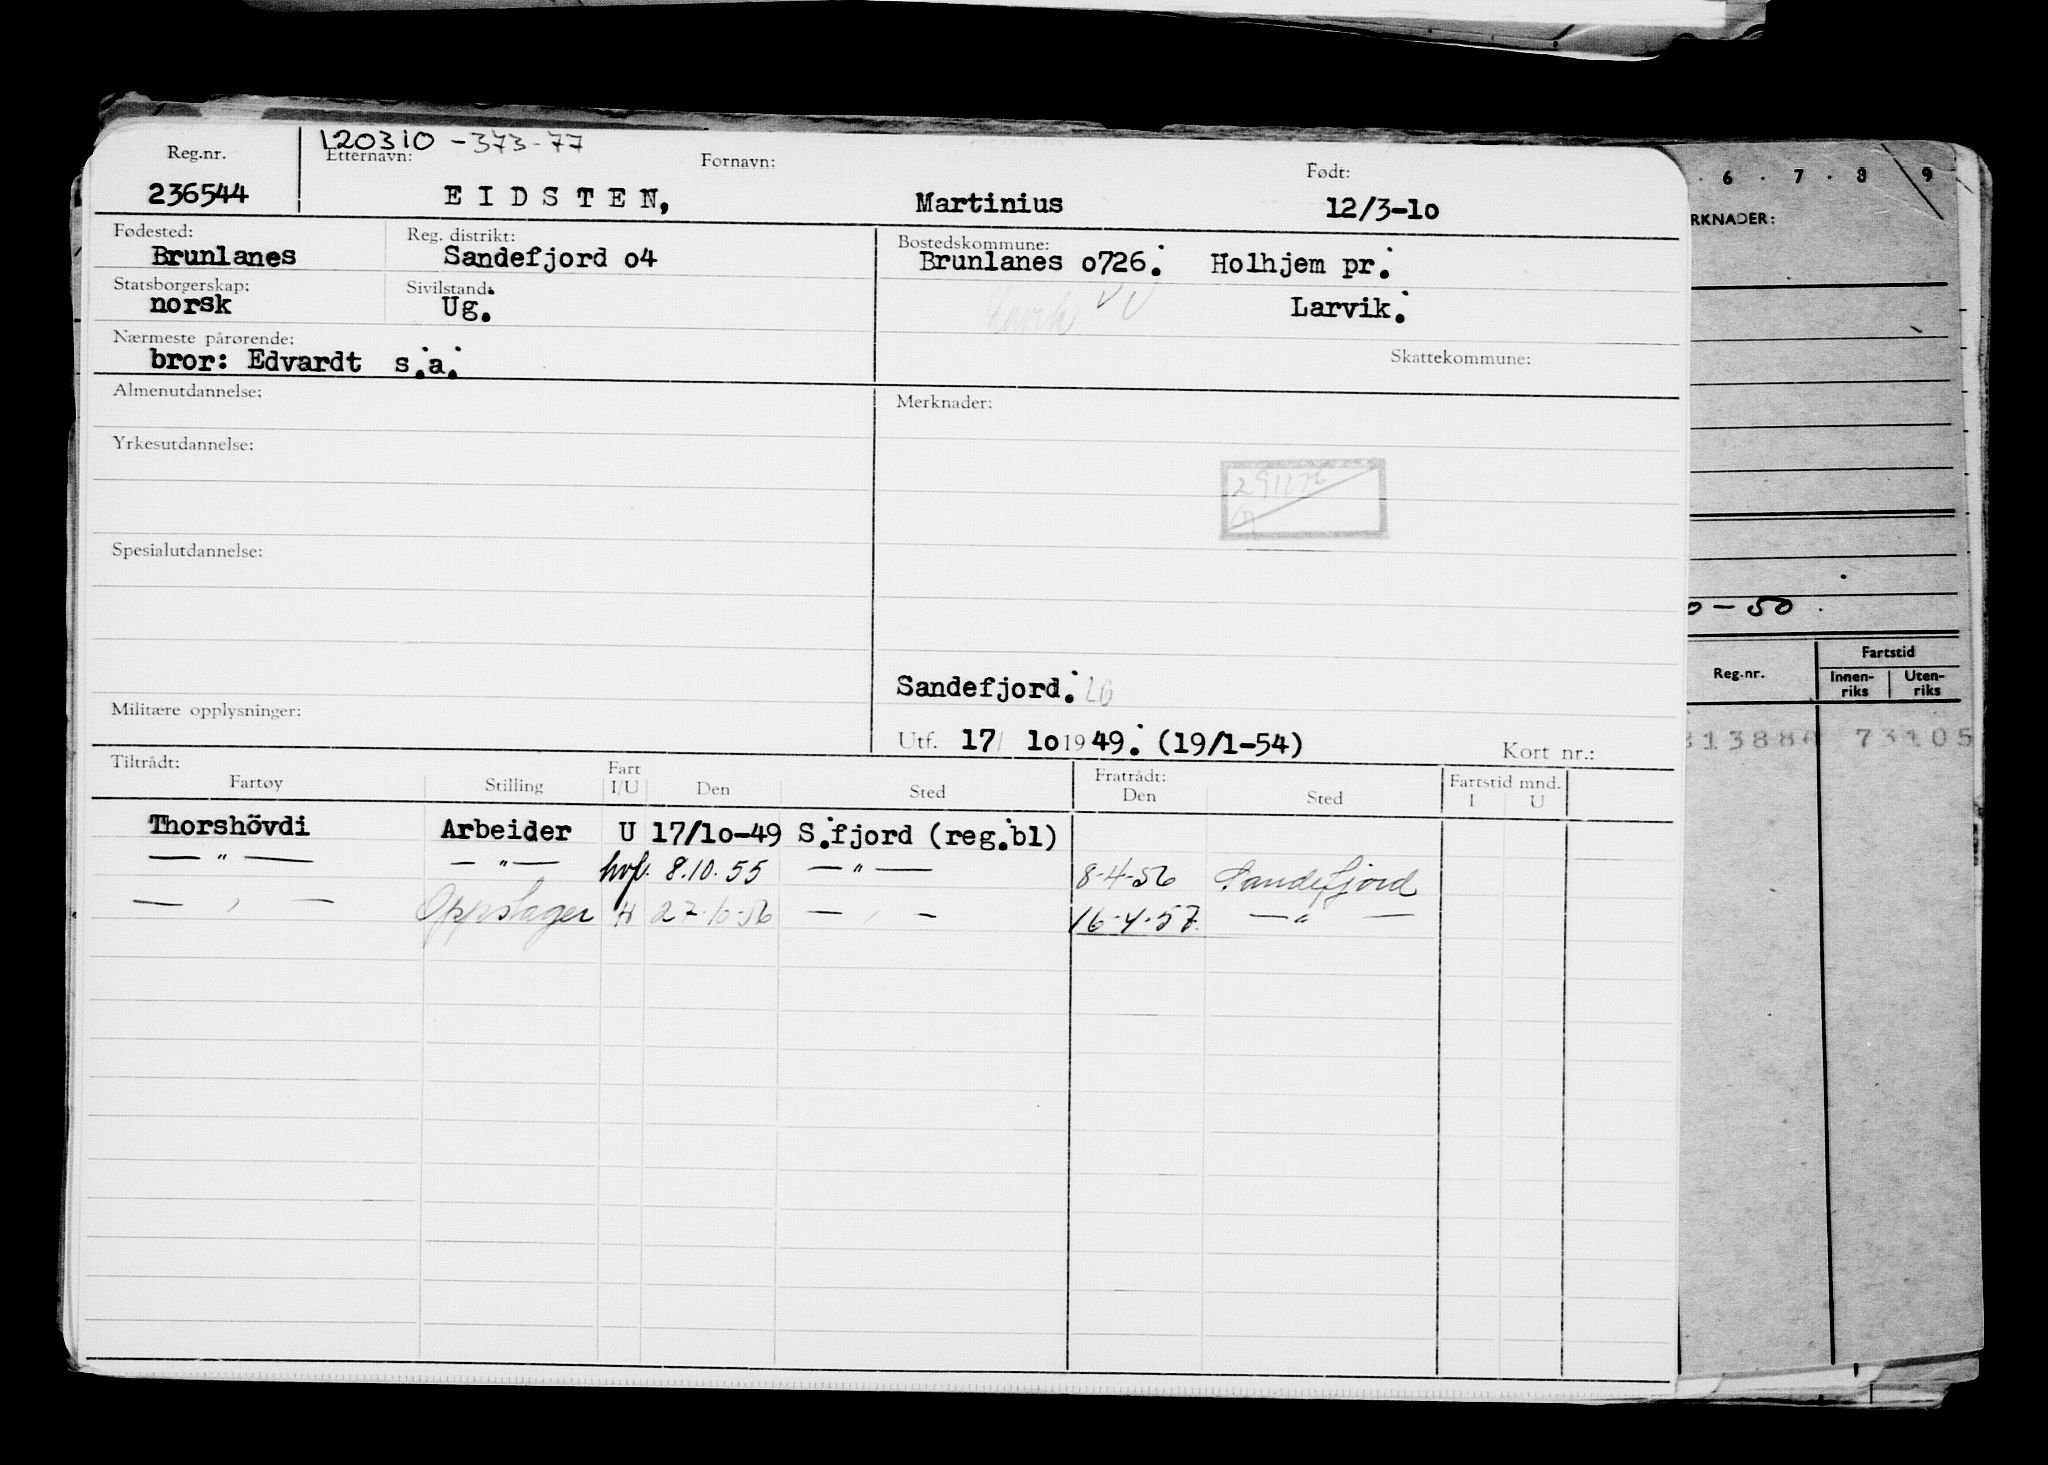 120310-373-77
Reg.nr. Etternavn: Fornavn: Født:
236544 EIDSTEN, Martinius 12/3-1o
Fødested: Reg. distrikt: Bostedskommune:
Brunlanes Sandefjord o4 Brunlanes o726. Holhjem pr.
Statsborgerskap: Sivilstand:
norsk Ug. Larvik.
Nærmeste pårørende: Skattekommune:
bror: Edvardt s.a.
Almenutdannelse: Merknader:
Yrkesutdannelse:
291276
Spesialutdannelse:
Sandefjord.
Militære opplysninger:
Utf. 17/ 1o 1949. (19/1-54) Kort nr.:
Tiltrådt: Fratrådt: Fartstid mnd.
Fartøy Stilling Fart I/U Den Sted Den Sted I U
Thorshövdi Arbeider U 17/1o-49 S.fjord (reg.bl)
— " — — " — hvf. 8.10.55 — " — 8-4-56 Sandefjord
— " — Oppslager H 27-10-56 — " — 16-4-57 — " —
6 . 7 . 8 9
RKNADER:
0-50
Reg.nr. Fartstid
Innen-riks Uten-riks
73105